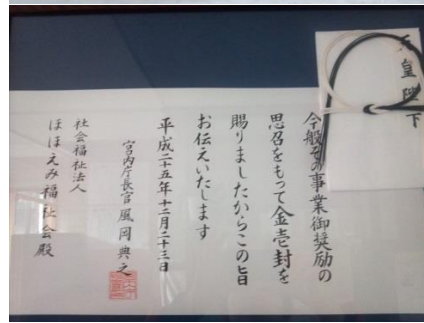 天皇陛下
今般その事業御奨励の
思召をもって金壱封を
賜りましたからこの旨
お伝えいたします
平成二十五年十二月二十三日
宮内庁長官 風岡典之
社会福祉法人
ほほえみ福祉会殿